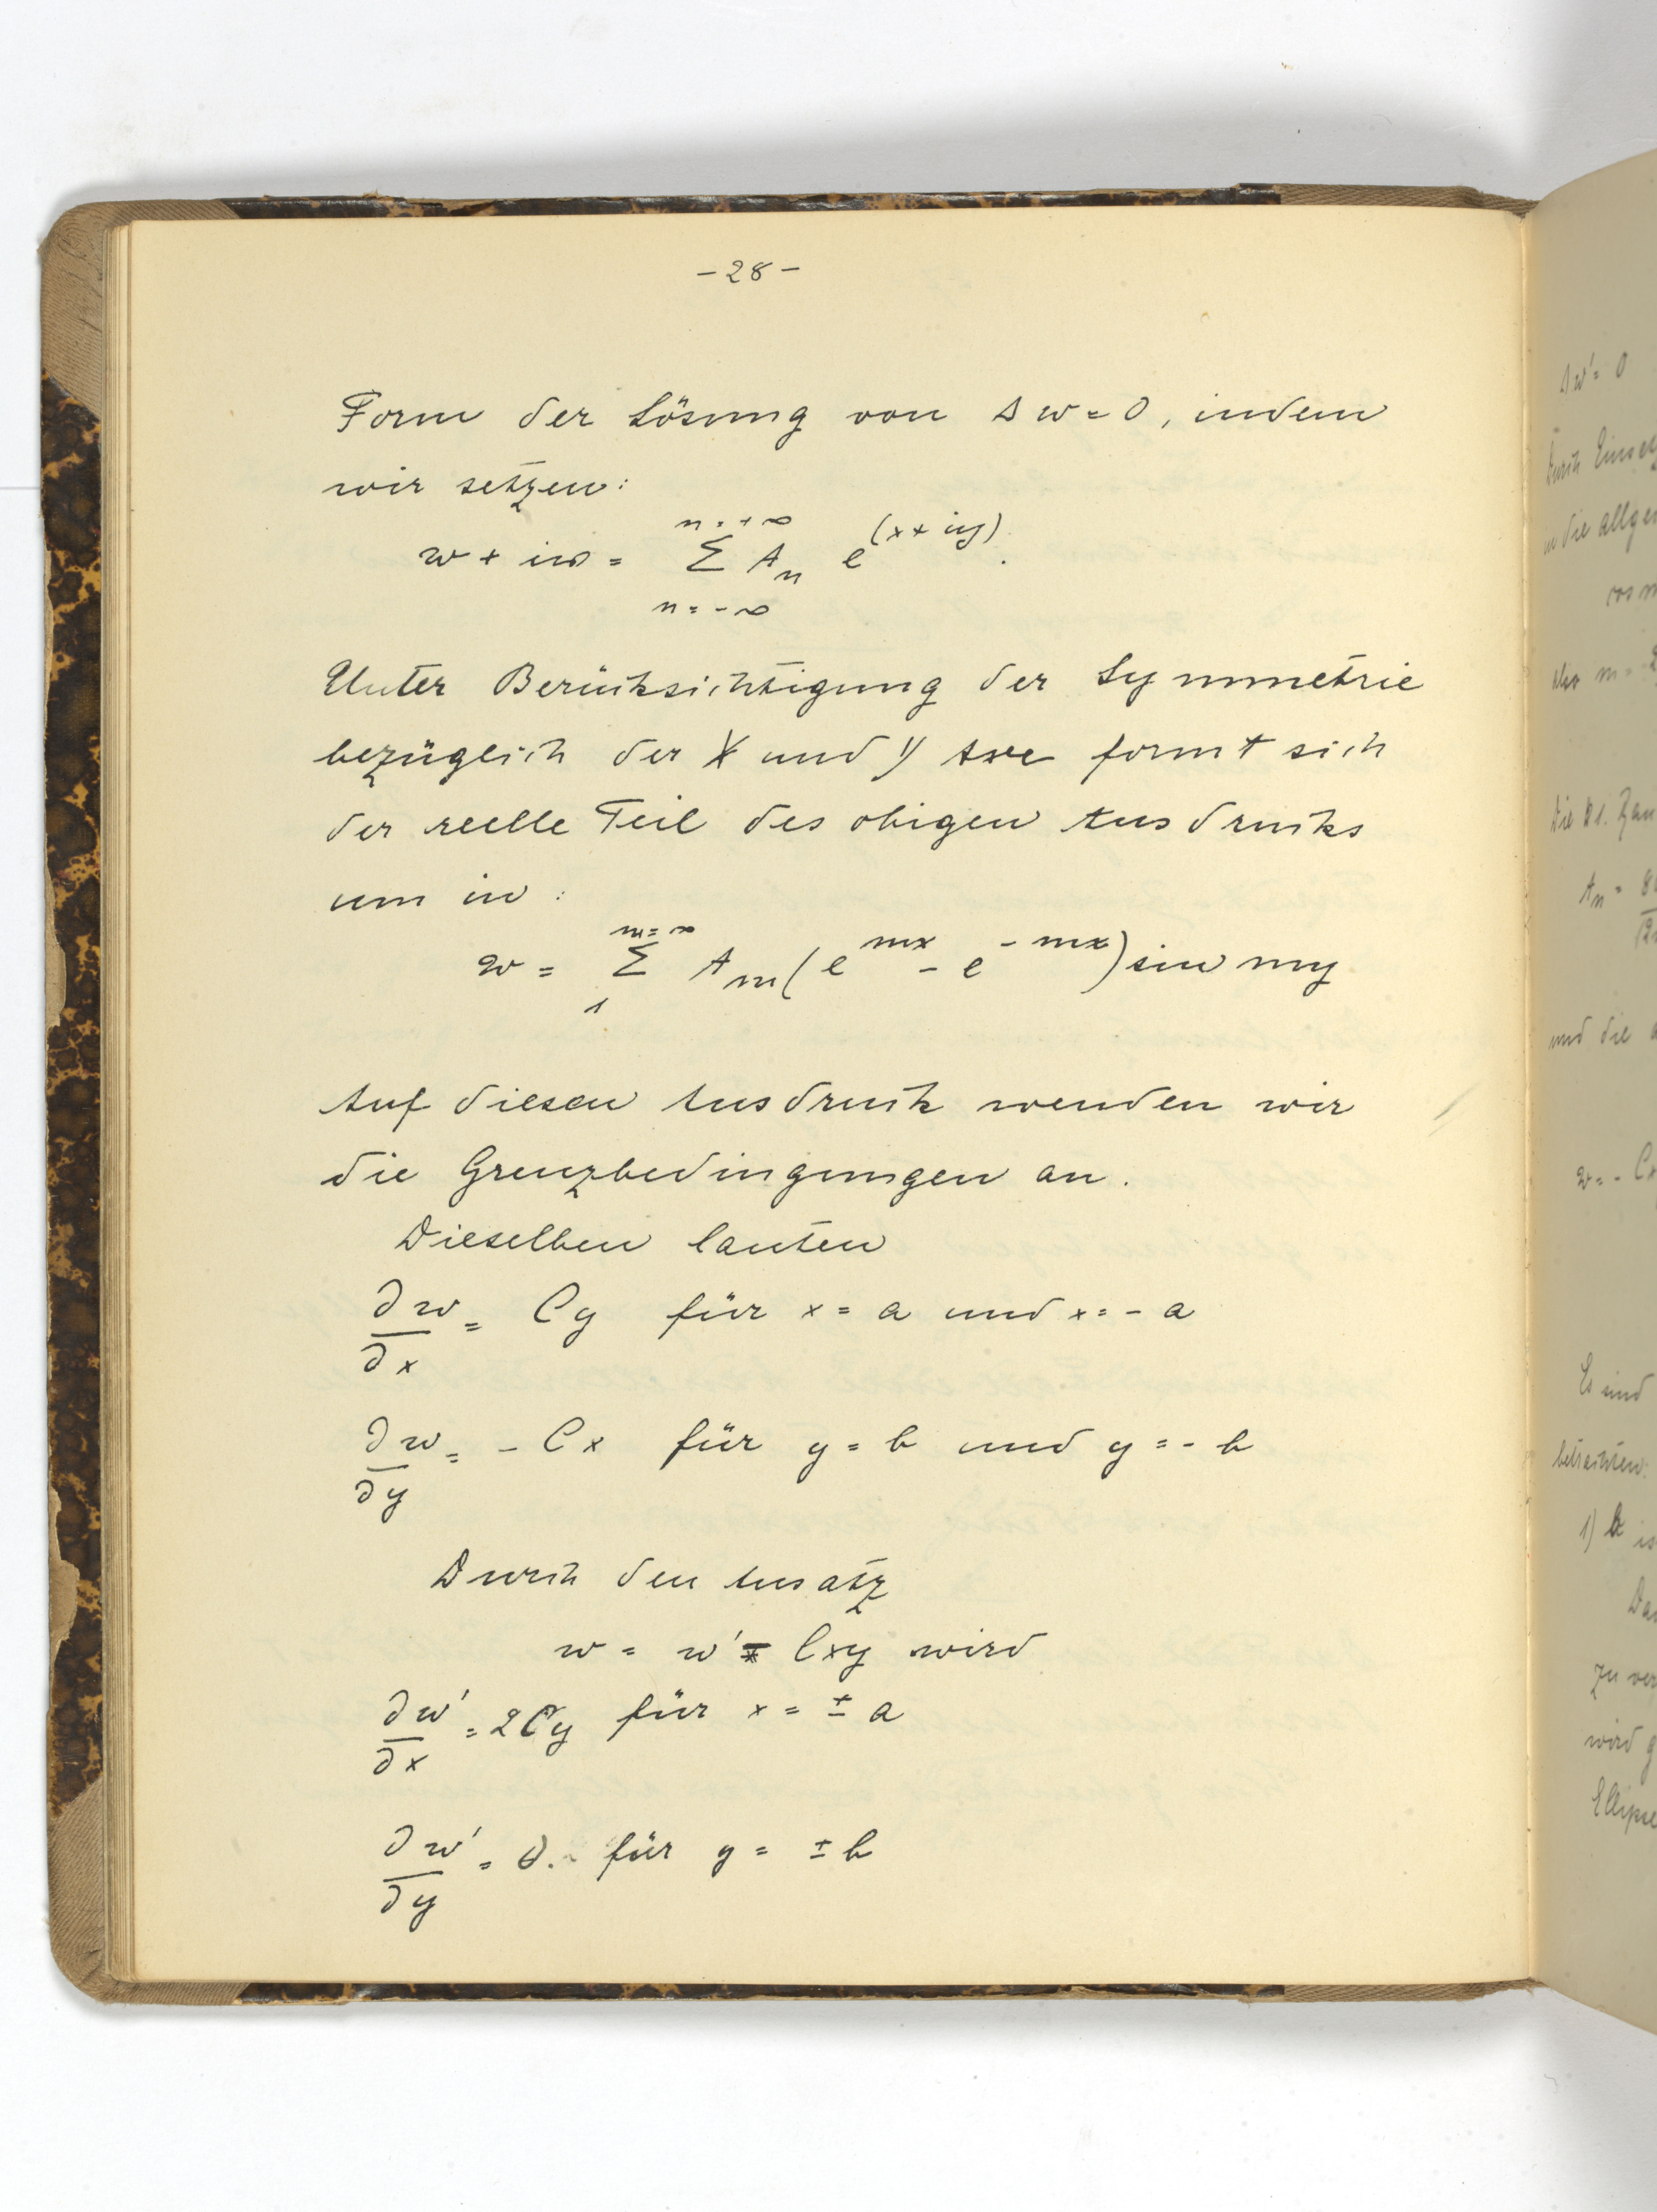 - 28 -
Form der Lösung von Δw = 0, indem
wir setzen:
w + iω = Σ_{n=-∞}^{n=+∞} A_n e^{(x+iy)}.
Unter Berücksichtigung der Symmetrie
bezüglich der X und Y Axe formt sich
der reelle Teil des obigen Ausdrucks
um in:
w = Σ_1^{m=∞} A_m (e^{mx} - e^{-mx}) sin my
Auf diesen Ausdruck wenden wir
die Grenzbedingungen an.
Dieselben lauten
∂w/∂x = Cy für x = a und x = - a
∂w/∂y = - Cx für y = b und y = - b
Durch den Ansatz
w = w' - Cxy wird
∂w'/∂x = 2Cy für x = ± a
∂w'/∂y = 0. für y = ± b
Δw' = 0
Durch
in die
und die
Es sind
betrachten:
1) b
zu
wird
Ellipse